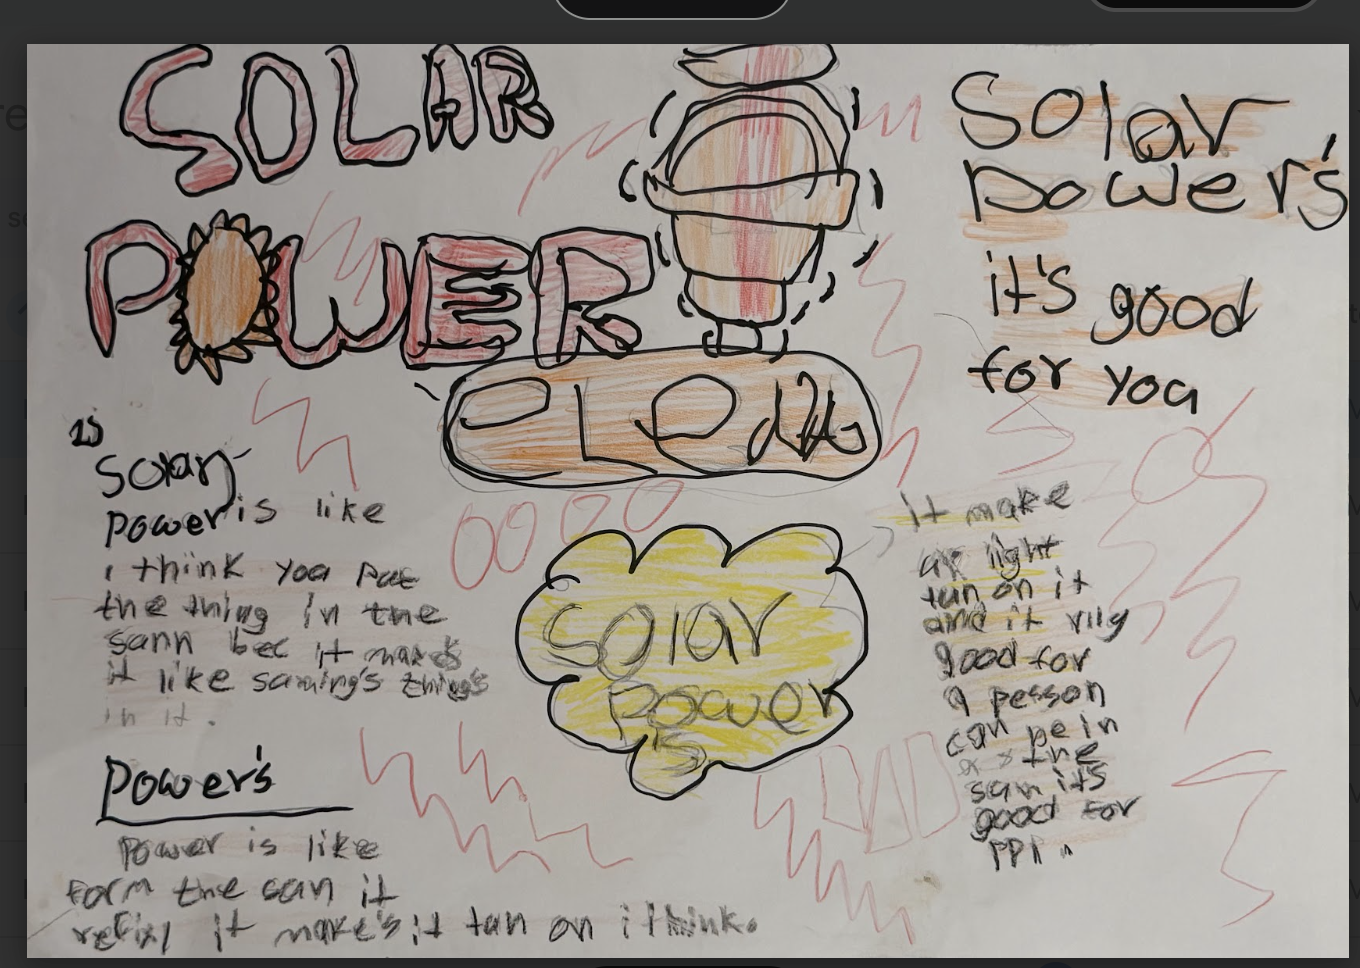 SOLAR
POWER
Solar
power's
it's good
for you
is
solar
power is like
i think you put
the thing in the
sann bec it makes
it like saming's things
in it.
Solar
power
is
it make
light
tun on it
and it rily
good for
a pesson
can be in
the
san it's
good for
ppl
Power's
Power is like
form the san it
it make's it tan on i think.